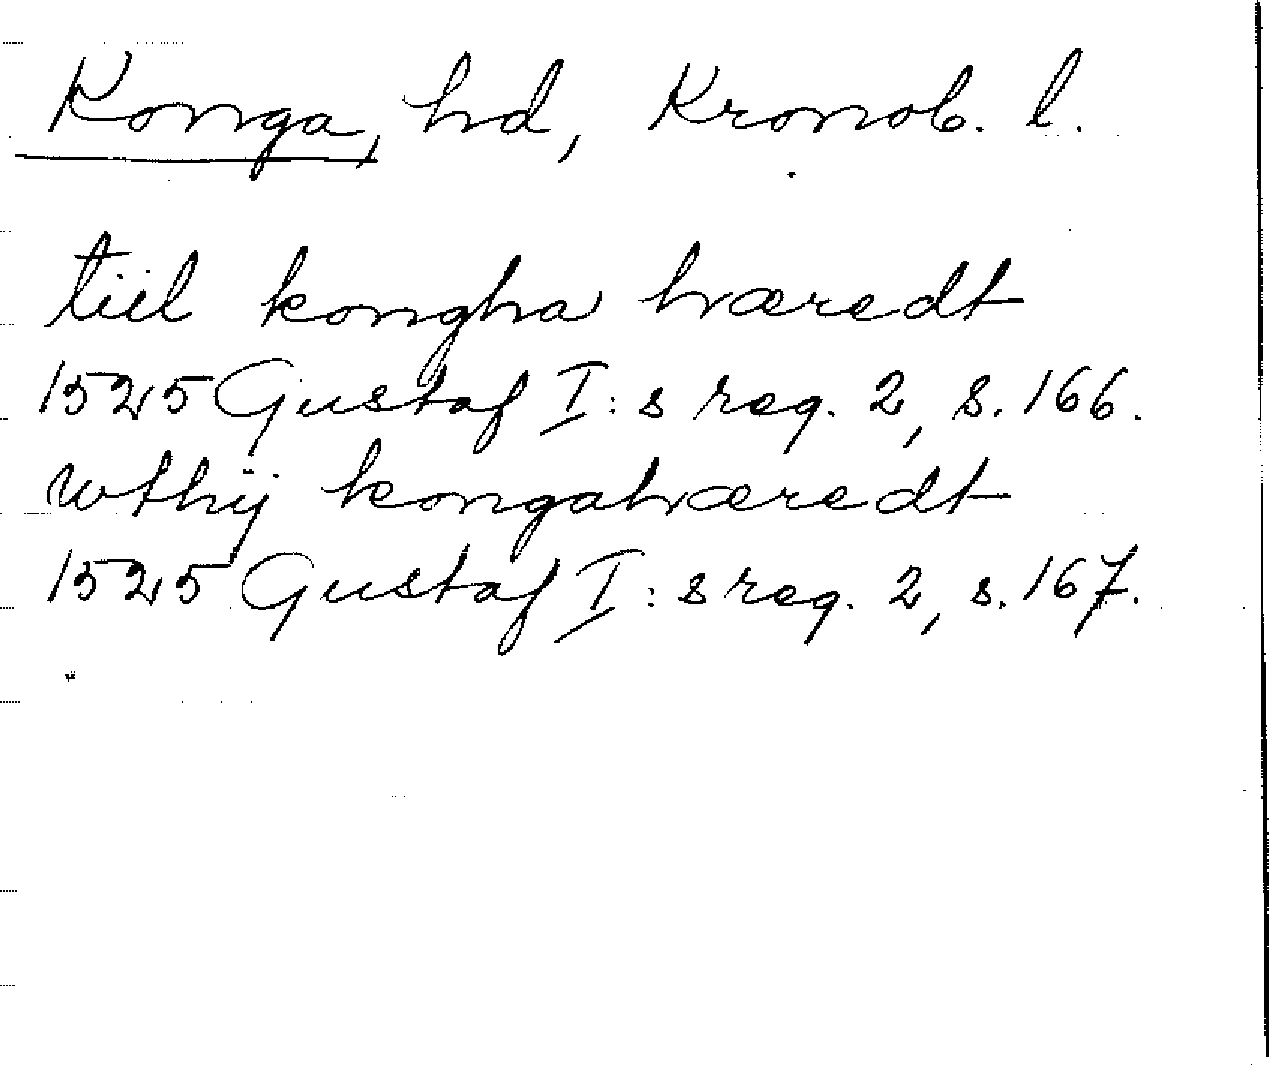 Konga, hd, Kronob. l.
tiil kongha hæredt
1525 Gustaf I:s reg. 2, s. 166.
wthij kongahæredt
1525 Gustaf I:s reg. 2, s. 167.